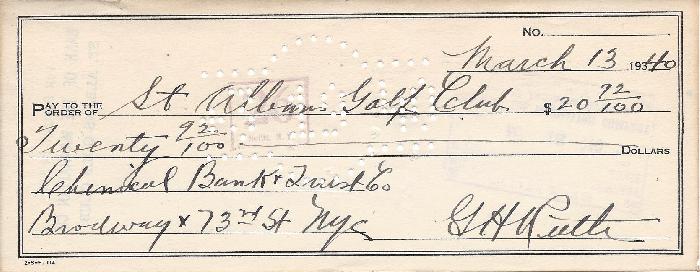 No.
March 13 193 40
PAY TO THE ORDER OF St Albans Golf Club $20 92/100
Twenty 92/100 DOLLARS
Chemical Bank & Trust Co
Brodway & 73rd St Nyc GH Ruth